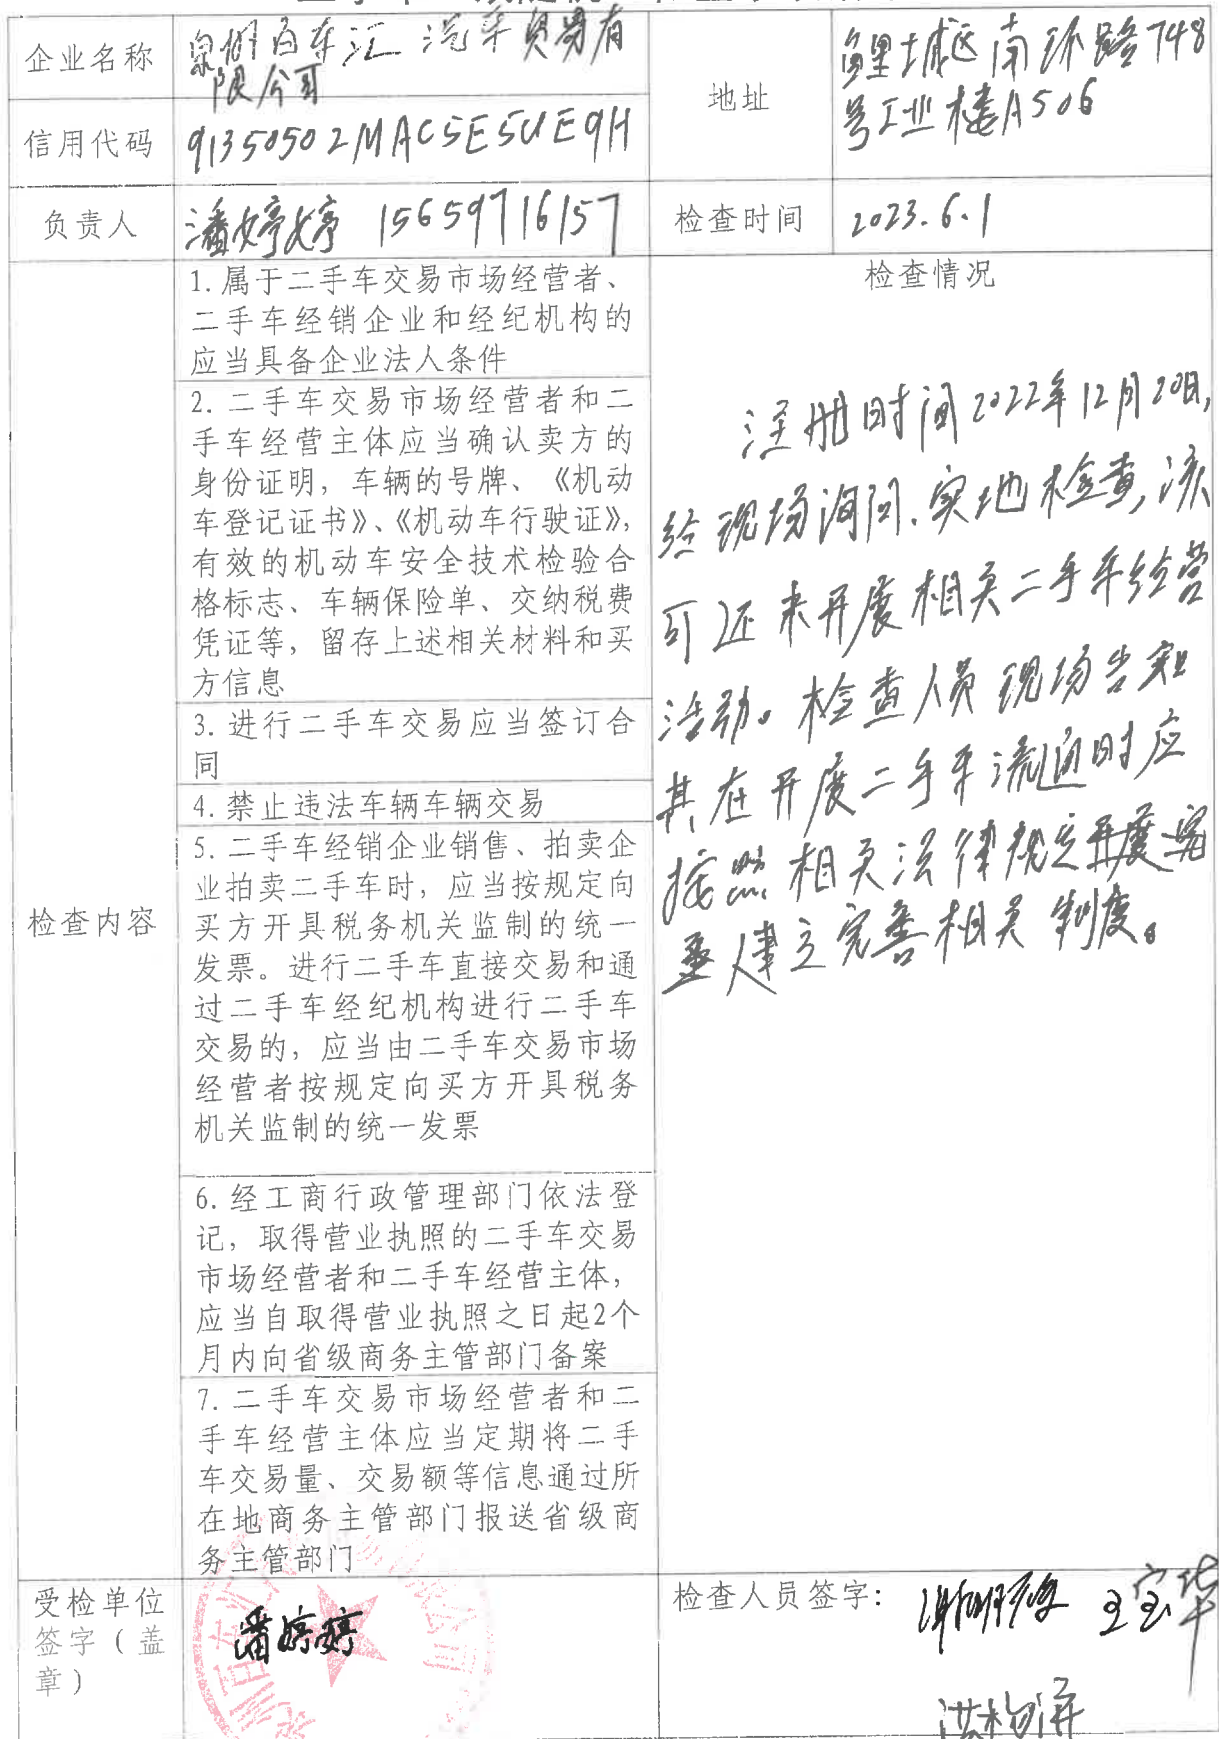 企业名称
泉州百车汇汽车贸易有
限公司
地址
鲤城区南环路748
号工业楼A506
信用代码
91350502MAC5E5UE9H
负责人
潘婷婷 15659716157
检查时间
2023.6.1
检查内容
1.属于二手车交易市场经营者、
二手车经销企业和经纪机构的
应当具备企业法人条件
2.二手车交易市场经营者和二
手车经营主体应当确认卖方的
身份证明，车辆的号牌、《机动
车登记证书》、《机动车行驶证》，
有效的机动车安全技术检验合
格标志、车辆保险单、交纳税费
凭证等，留存上述相关材料和买
方信息
3.进行二手车交易应当签订合
同
4.禁止违法车辆车辆交易
5.二手车经销企业销售、拍卖企
业拍卖二手车时，应当按规定向
买方开具税务机关监制的统一
发票。进行二手车直接交易和通
过二手车经纪机构进行二手车
交易的，应当由二手车交易市场
经营者按规定向买方开具税务
机关监制的统一发票
6.经工商行政管理部门依法登
记，取得营业执照的二手车交易
市场经营者和二手车经营主体，
应当自取得营业执照之日起2个
月内向省级商务主管部门备案
7.二手车交易市场经营者和二
手车经营主体应当定期将二手
车交易量、交易额等信息通过所
在地商务主管部门报送省级商
务主管部门
检查情况
注册时间2022年12月20日，
经现场询问、实地检查，该
司还未开展相关二手车经营
活动。检查人员现场告知
其在开展二手车流通时应
按照相关法律规定开展
建立完善相关制度。
受检单位
签字（盖
章）
潘婷婷
检查人员签字：
王宝华